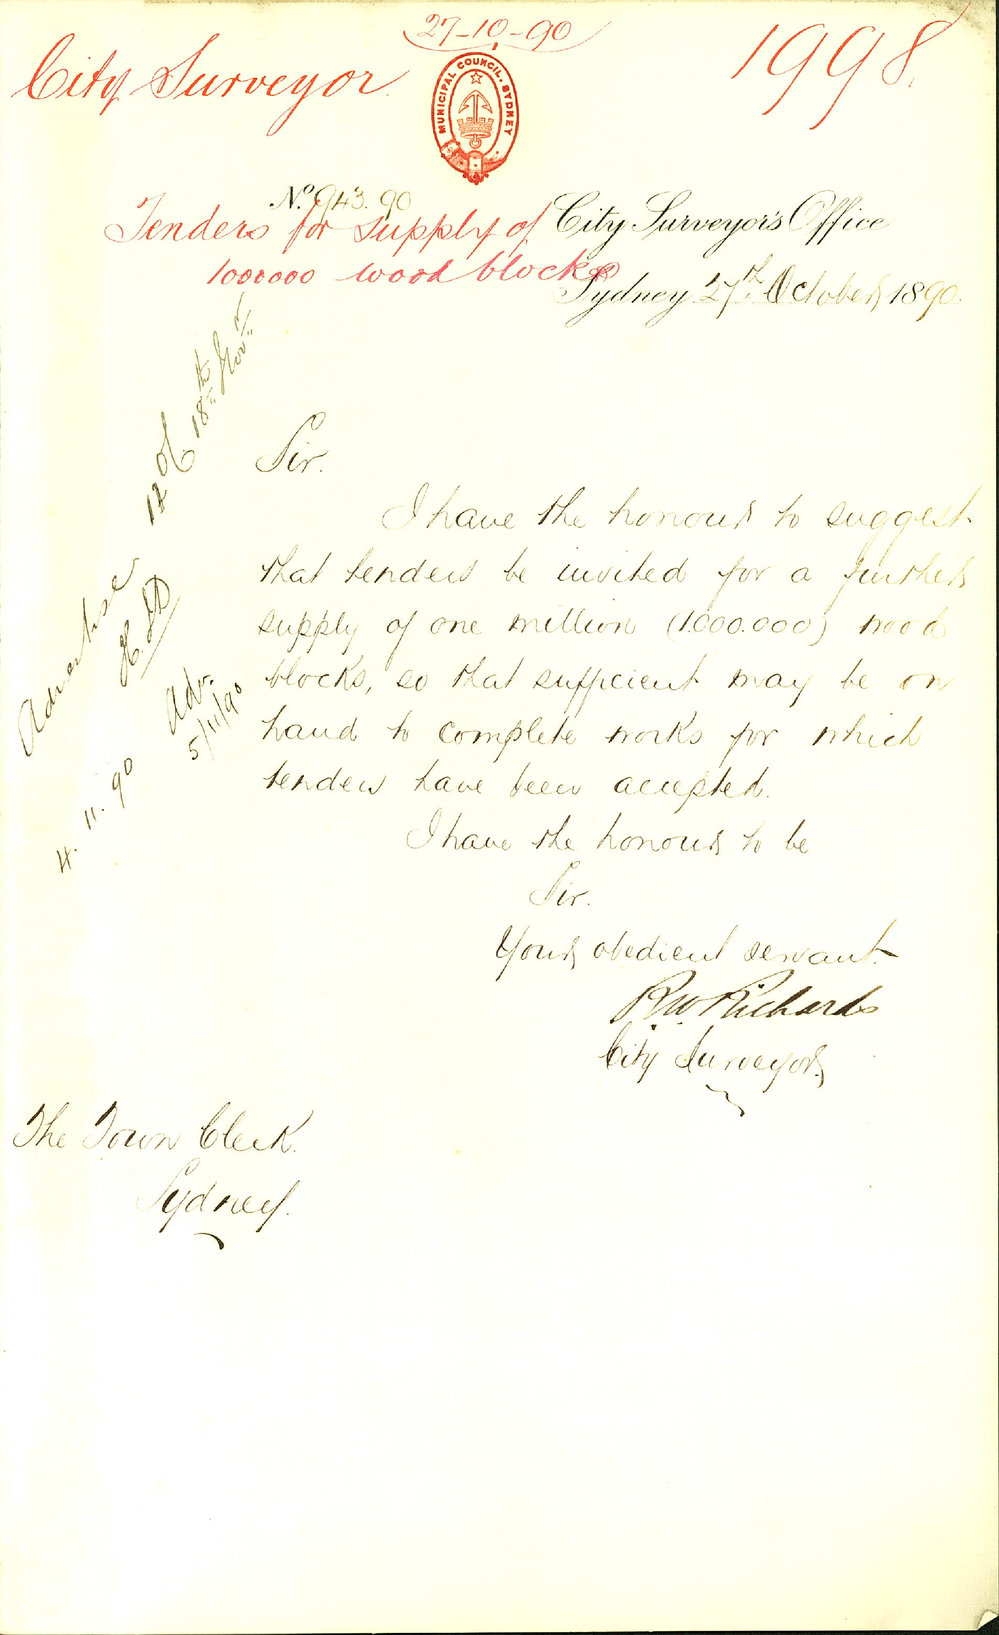 27-10-90
City Surveyor
1998
MUNICIPAL COUNCIL. SYDNEY
No. 943.90
Tenders for supply of
1000000 wood blocks
City Surveyor's Office
Sydney 27th October 1890.
Sir.
I have the honour to suggest
that tenders be invited for a further
supply of one million (1.000.000) wood
blocks, so that sufficient may be on
hand to complete works for which
tenders have been accepted.
I have the honour to be
Sir.
Your obedient servant.
R.W. Richards
City Surveyor.
The Town Clerk.
Sydney.
Advertise
18th Nov.
4. 11. 90
Adv.
5/11/90